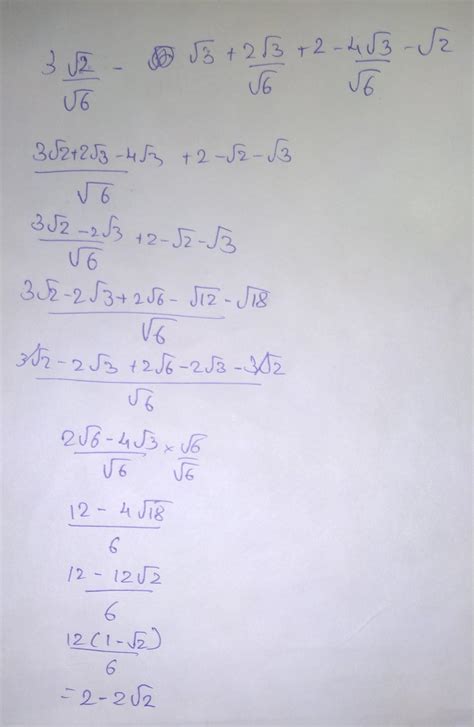 3√2/√6 - √3 + 2√3/√6 + 2 - 4√3/√6 - √2
(3√2+2√3-4√3)/√6 + 2-√2-√3
(3√2-2√3)/√6 + 2-√2-√3
(3√2-2√3+2√6-√12-√18)/√6
(3√2-2√3+2√6-2√3-3√2)/√6
(2√6-4√3)/√6 × √6/√6
(12-4√18)/6
(12-12√2)/6
12(1-√2)/6
=2-2√2